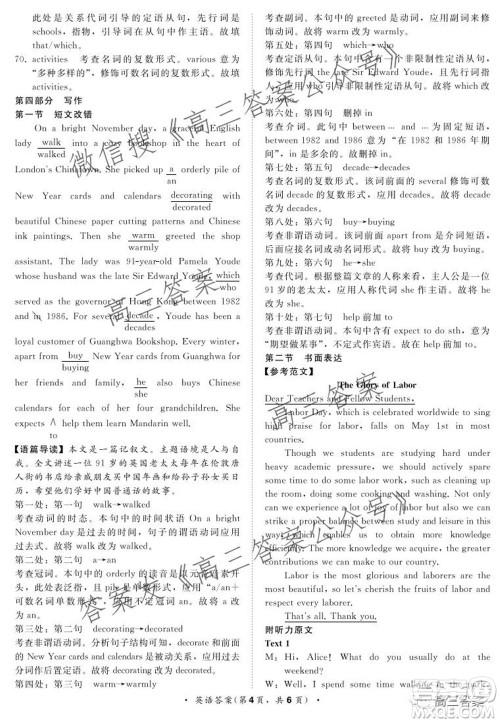 此处是关系代词引导的定语从句，先行词是
schools，指物，引导词在从句中作主语，故填
that/which。
70. activities 考查名词的复数形式。various 意为
“多种多样的”，修饰可数名词的复数形式。
第四部分 写作
第一节 短文改错
On a bright November day, a graceful English
lady walk into a cozy bookshop in the heart of
walked
London's Chinatown. She picked up a orderly pile of
a
New Year cards and calendars decorating with
decorated
beautiful Chinese paper cutting patterns and Chinese
ink paintings. Then she warm greeted the shop
warmly
assistant. The lady was 91-year-old Pamela Youde
whose husband was the late Sir Edward Youde, which
who
served as the governor of Hong Kong between 1982
and in 1986. For several decade, Youde has been a
decades
loyal customer of Guanghwa Bookshop. Every winter,
apart from buy New Year cards from Guanghwa for
buying
her friends and family, he also chooses Chinese
she
calendars for each of her four grandchildren. She
expects ∧ help them learn Mandarin well.
to
【语篇导读】本文是一篇记叙文。主题语境是人与自
我。全文讲述一位 91 岁的英国老太太每年在伦敦唐
人街的书店给亲戚朋友和给孙子孙女买日
历并期盼他们学好中国普通话的故事。
第一处：第一句 walk→walked
考查动词的时态。本句中的时间状语 On a bright
November day 是一个过去的时间，故谓语动词应该用
过去式。故将 walk 改为 walked。
第二处：第二句 a→an
考查冠词。本句中的 orderly 的读音是以元音音素开
头，此处表泛指，且 pile 是单数形式，应用“a/an+
可数名词单数形式”。故将 a 改为 an。
第三处：第二句 decorating→decorated
考查非谓语动词。分析句子结构可知，decorate 和前面
的 New Year cards and calendars 是被动关系，应用过
去分词作后置定语。故将 decorating 改为 decorated。
第四处：第三句 warm→warmly
考查副词。本句中 greeted 是动词，应用副词修饰动
词。故将 warm 改为 warmly。
第五处：第四句 which→who
考查定语从句。本句中含有一个非限制性定语从句，先
行词是 the late Sir Edward Youde，指人，在从句中作
主语，应用 who 引导该非限制性定语从句。故将 which
改为 who。
第六处：第四句 删掉 in
考查介词。此句中的 between ... and ... 为固定短语，
between 1982 and 1986 意为“在 1982 和 1986 年期
间”。故删掉 in。
第七处：第五句 decade→decades
考查名词的复数形式。该词前面的 several 修饰可数名
词的复数形式。故将 decade 改为 decades。
第八处：第六句 buy→buying
考查非谓语动词。本句中的 apart from 是介词短语，
后面应接名词或动名词形式。故将 buy 改为 buying。
第九处：第六句 he→she
考查代词。根据整篇文章的人称来看，主人公是一位
91 岁的老太太，应用女性的人称代词。故将 he 改为
she。
第十处：第七句 help 前加 to
考查非谓语动词。本句中含有 expect to do sth.，意为
“期望做某事”，不定式作宾语。故在 help 前加 to。
第二节 书面表达
【参考范文】
The Glory of Labor
Dear Teachers and Fellow Students,
Labor Day, which is celebrated worldwide to sing
high praise for labor, falls on May 1st in most
countries.
Though we students are supposed to study hard and
under heavy academic pressure, we should actively spare
some time to do some household duties, such as cleaning
up the room, doing some cooking and washing. Not only
can we enjoy the pleasure of labor, but also we can
strike a proper balance between study and leisure in this
way, which enables us to obtain more knowledge more
efficiently.
Labor is the most glorious and laborers are the
most beautiful, so let's cherish the fruits of labor and
respect every laborer.
That's all. Thank you.
附听力原文
Text 1
M: Hi, Alice! What do you usually do at the
weekend?
W: Well, I spend some time watching movies
英语答案（第 4 页，共 6 页）
微信搜《高三答案公众号》
高三答案